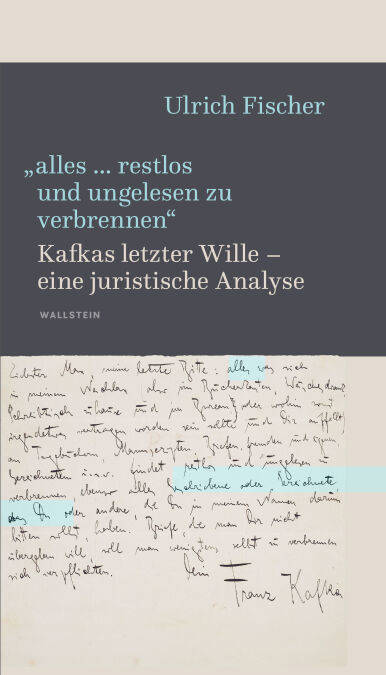 Ulrich Fischer
„alles ... restlos
und ungelesen zu
verbrennen“
Kafkas letzter Wille –
eine juristische Analyse
WALLSTEIN
Liebster Max, meine letzte Bitte: alles was sich
in meinem Nachlass (also im Bücherkasten, Wäscheschrank
Schreibtisch zuhause und im Bureau, oder wohin sonst
irgendetwas vertragen worden sein sollte und Dir auffällt)
an Tagebüchern, Manuscripten, Briefen, fremden und eigenen
Gezeichnetem u.s.w. findet restlos und ungelesen zu
verbrennen, ebenso alles Geschriebene oder Gezeichnete,
das Du oder andere, die Du in meinem Namen darum
bitten sollst, haben. Briefe, die man Dir nicht
übergeben will, soll man wenigstens selbst zu verbrennen
sich verpflichten.
Dein
Franz Kafka